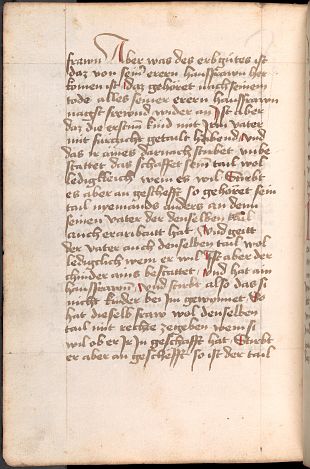 frawn Aber was des erbgutes ist
daz von seiner erern hausfrawn her
komen ist daz gehoret nach seinem
tode alles seiner erern hausfrawn
nagst frewnd wider an Ist aber
daz die ersten kind mit irm vater
mit furzicht getailt habend und
das ir aines darnach stirbet unbe
stattet das schaffet sein tail wol
lediglich wem es wil Stirbt
es aber an geschefft so gehoret sein
tail niemands anders an denn
seinen vater der denselben tail
auch erarbaitt hat Und geitt
der vater auch denselben tail wol
lediglich wem er wil Ist aber der
chinder ains bestattet Und hat ain
hausfrawn Und stirbt also das si
nicht kinder bei im gewinnet So
hat dieselb fraw wol denselben
tail mit rechte zegeben wem si
wil ob er Ir in geschafft hat Stirbt
er aber an geschefft so ist der tail